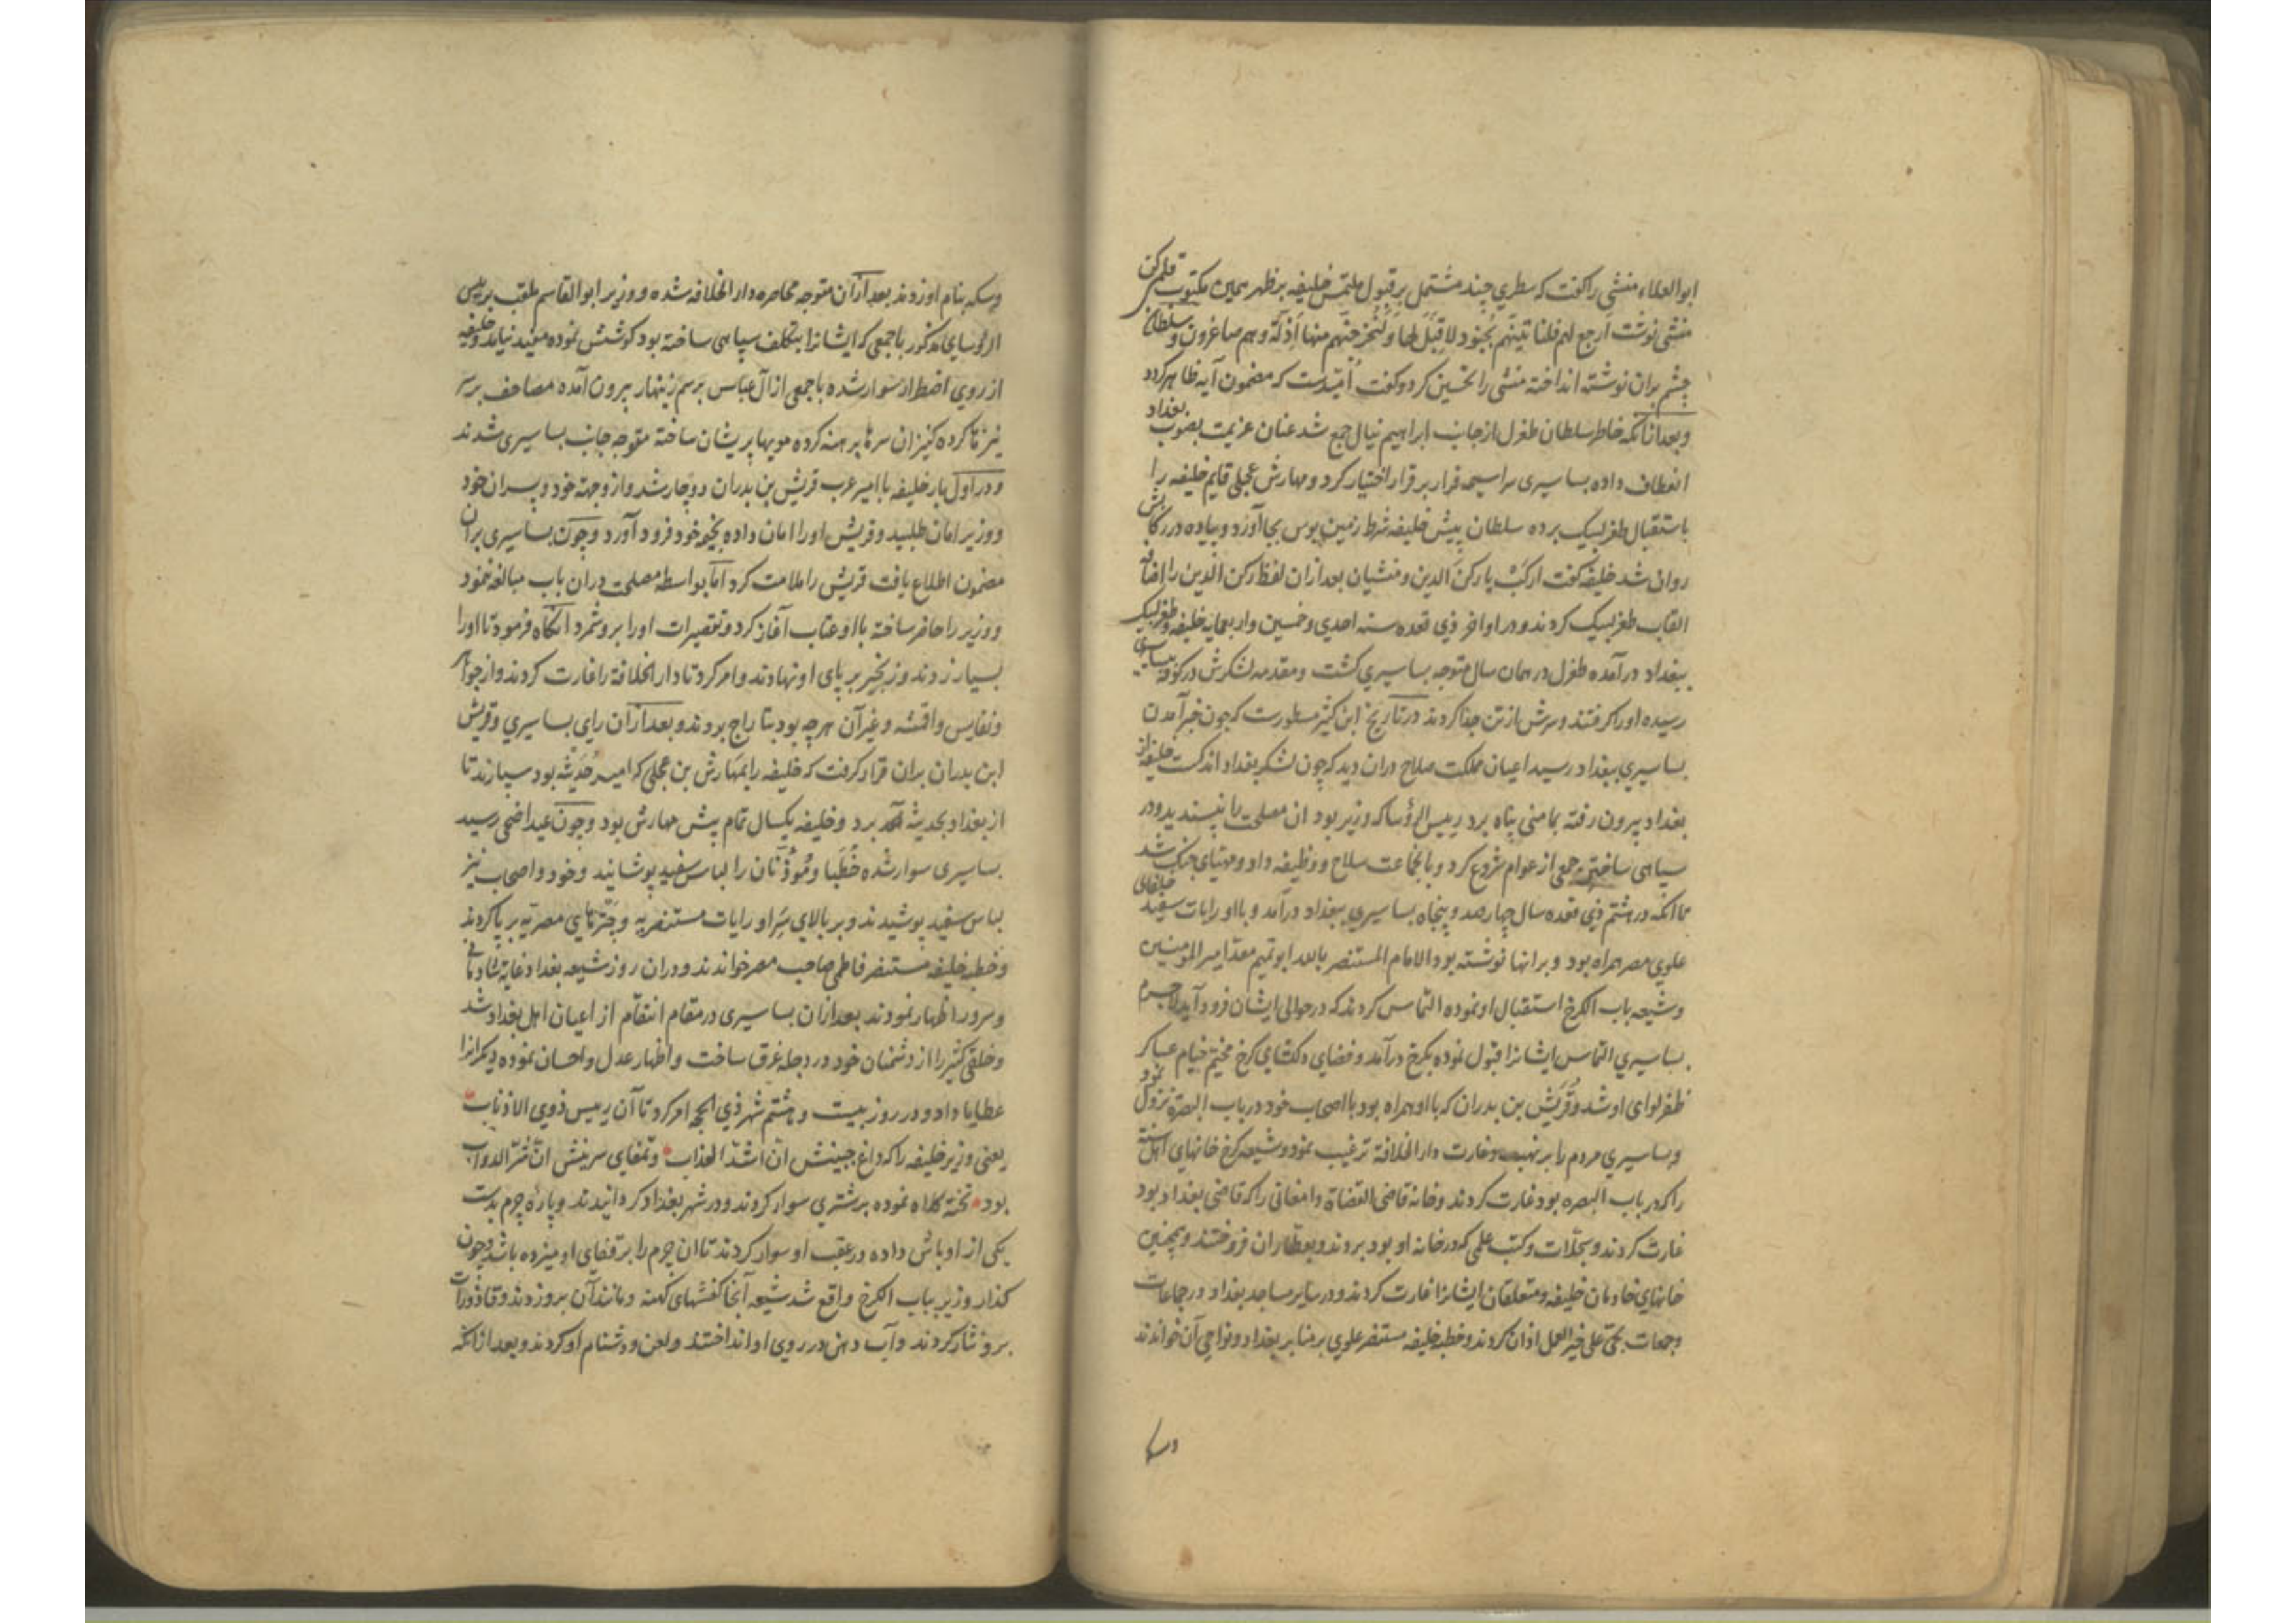 ابوالعلاء منشی را کفت که سطری چند مشتمل بر قبول ملتمس خلیفه بر ظهر همین مکتوب قلمی کن
منشی نوشت ارجع لهم فلناتینهم بجنود لا قبل لها ولنخرجنهم منها اذلة وهم صاغرون و سلطان
چشم بران نوشته انداخته منشی را تحسین کرد و کفت امیدست که مضمون آیه ظاهر کردد
وبعد ازانکه خاطر سلطان طغرل از جانب ابراهیم نیال جمع شد عنان عزیمت بصوب بغداد
انعطاف داده بساسیری سراسیمه فرار بر قرار اختیار کرد و مهارش عجلی قایم خلیفه را
باستقبال طغرلبیک برده سلطان پیش خلیفه شرط زمین بوس بجا آورد و پیاده در رکابش
روان شد خلیفه کفت ارکب یا رکن الدین و منشیان بعد ازان لفظ رکن الدین را اضافه
القاب طغرلبیک کردند و در اواخر ذی قعده سنه احدی وخمسین واربعمایه خلیفه و طغرلبیک
ببغداد درآمده طغرل در همان سال متوجه بساسیری کشت و مقدمه لشکرش در کوفه ببساسیری
رسیده او را کرفتند و سرش از تن جدا کردند در تاریخ ابن کثیر مسطورست که چون خبر آمدن
بساسیری ببغداد رسید اعیان مملکت صلاح دران دید که چون لشکر بغداد اندکست خلیفه از
بغداد بیرون رفته بمامنی پناه برد رییس الرؤسا که وزیر بود ان مصلحت را نپسندید و در
سپاهی ساختن جمعی از عوام شروع کرد و بانجماعت سلاح و وظیفه داد و مهیای جنک شد
تا انکه در هشتم ذی قعده سال چهارصد و پنجاه بساسیری ببغداد درآمد و با او رایات سفید خلفای
علوی مصر همراه بود و برانها نوشته بود الامام المستنصر بالله ابو تمیم معد امیر المومنین
وشیعه باب الکرخ استقبال او نموده التماس کردند که در حوالی ایشان فرود آید لاجرم
بساسیری التماس ایشانرا قبول نموده بکرخ درآمد و فضای دلکشای کرخ مخیم خیام عساکر
ظفر لوای او شد و قریش بن بدران که با او همراه بود با اصحاب خود در باب البصرة نزول نمود
وبساسیری مردم را بر نهب و غارت دار الخلافة ترغیب نمود و شیعه کرخ خانهای اهل سنة
را که در باب البصره بود غارت کردند و خانه قاضی القضاة دامغانی را که قاضی بغداد بود
غارت کردند و سجلات و کتب علمی که در خانه او بود بردند و بعطاران فروختند و همچنین
خانهای خادمان خلیفه و متعلقان ایشانرا غارت کردند و در سایر مساجد بغداد و در جماعات
وجمعات بحی علی خیر العمل اذان کردند و خطبه خلیفه مستنصر علوی بر منابر بغداد و نواحی آن خواندند
وسکه بنام او زدند بعد ازان متوجه محاصره دار الخلافه شده و وزیر ابو القاسم ملقب برییس
الرؤسای مذکور با جمعی که ایشانرا بتکلف سپاهی ساخته بود کوشش نموده مفید نیامد و خلیفه
از روی اضطرار سوار شده با جمعی از آل عباس برسم زینهار بیرون آمده مصاحف بر سر
نیزها کرده کنیزان سرها برهنه کرده مویها پریشان ساخته متوجه جانب بساسیری شدند
ودر اول بار خلیفه با امیر عرب قریش بن بدران دوچار شد و از و جهة خود و پسران خود
ووزیر امان طلبید و قریش او را امان داده بخیمه خود فرود آورد و چون بساسیری بران
مضمون اطلاع یافت قریش را ملامت کرد اما بواسطه مصلحت دران باب مبالغه ننمود
ووزیر را حاضر ساخته با او عتاب آغاز کرد و تقصیرات او را برو شمرد انکاه فرمود تا او را
بسیار زدند و زنجیر بر پای او نهادند و امر کرد تا دار الخلافة را غارت کردند و از جواهر
ونفایس و اقمشه و غیر آن هرچه بود بتاراج بردند و بعد ازان رای بساسیری و قریش
ابن بدران بران قرار کرفت که خلیفه را بمهارش بن عجلی که امیر حدیثه بود سپارند تا
از بغداد بحدیثه برد و خلیفه یکسال تمام پیش مهارش بود و چون عید اضحی رسید
بساسیری سوار شده خطبا و مؤذنان را لباس سفید پوشانید و خود و اصحاب نیز
لباس سفید پوشیدند و بر بالای سر او رایات مستنصریه و چترهای مصریه بر پا کردند
وخطبه خلیفه مستنصر فاطمی صاحب مصر خواندند و دران روز شیعه بغداد غایة شادمانی
وسرور اظهار نمودند بعد ازان بساسیری در مقام انتقام از اعیان اهل بغداد شد
وخلقی کثیر را از دشمنان خود در دجله غرق ساخت و اظهار عدل و احسان نموده دیکرانرا
عطایا داد و در روز بیست و هشتم شهر ذی الحجه امر کرد تا آن رییس ذوی الاذناب
یعنی وزیر خلیفه را که داغ جبینش ان اشد العذاب و تمغای سرینش ان شر الدواب
بود تخته کلاه نموده بر شتری سوار کردند و در شهر بغداد کردانیدند و پاره چرم بدست
یکی از اوباش داده در عقب او سوار کردند تا ان چرم را بر قفای او میزده باشد و چون
کذار وزیر بباب الکرخ واقع شد شیعه آنجا کفشهای کهنه و مانند آن برو زدند و قاذورات
برو نثار کردند و آب دهن در روی او انداختند و لعن و دشنام او کردند و بعد ازانکه